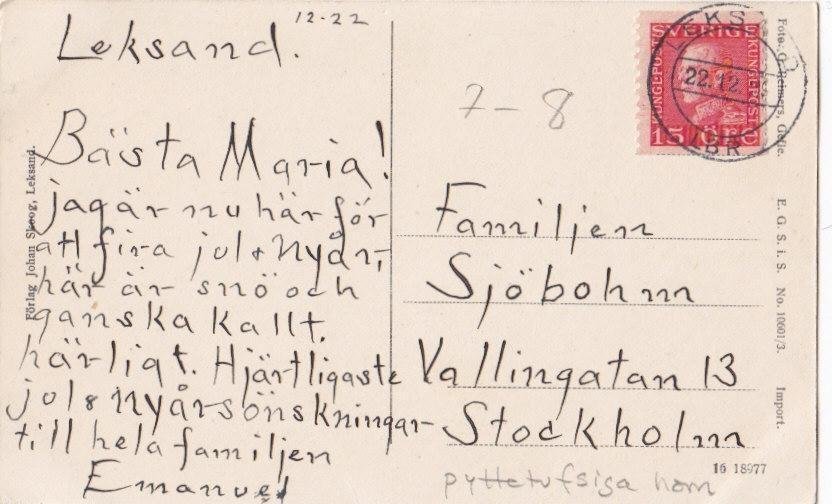 12-22
Leksand.
Bästa Maria!
jag är nu här för
att fira jul & nyår,
här är snö och
ganska kallt.
härligt. Hjärtligaste
jul & nyårsönskningar
till hela familjen
Emanuel
Förlag Johan Skoog, Leksand.
7-8
SVERIGE
15 ÖRE
22.12.
LBR
Familjen
Sjöbohm
Vallingatan 13
Stockholm
16 18977
Foto: O. Reimers, Gefle. E. G. S. i. S. No. 10601/3. Import.